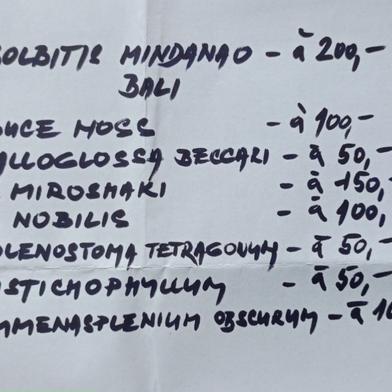 OLBITIS MINDANAO - à 200,-
BALI
UCE MOSS - à 100,-
LLOGLOSSA BECCARI - à 50,-
MIROSHAKI - à 150,-
NOBILIS - à 100,
LENOSTOMA TETRAGONUM - à 50,-
STICHOPHYLLUM - à 50,-
MMENASPLENIUM OBSCURUM - à 10